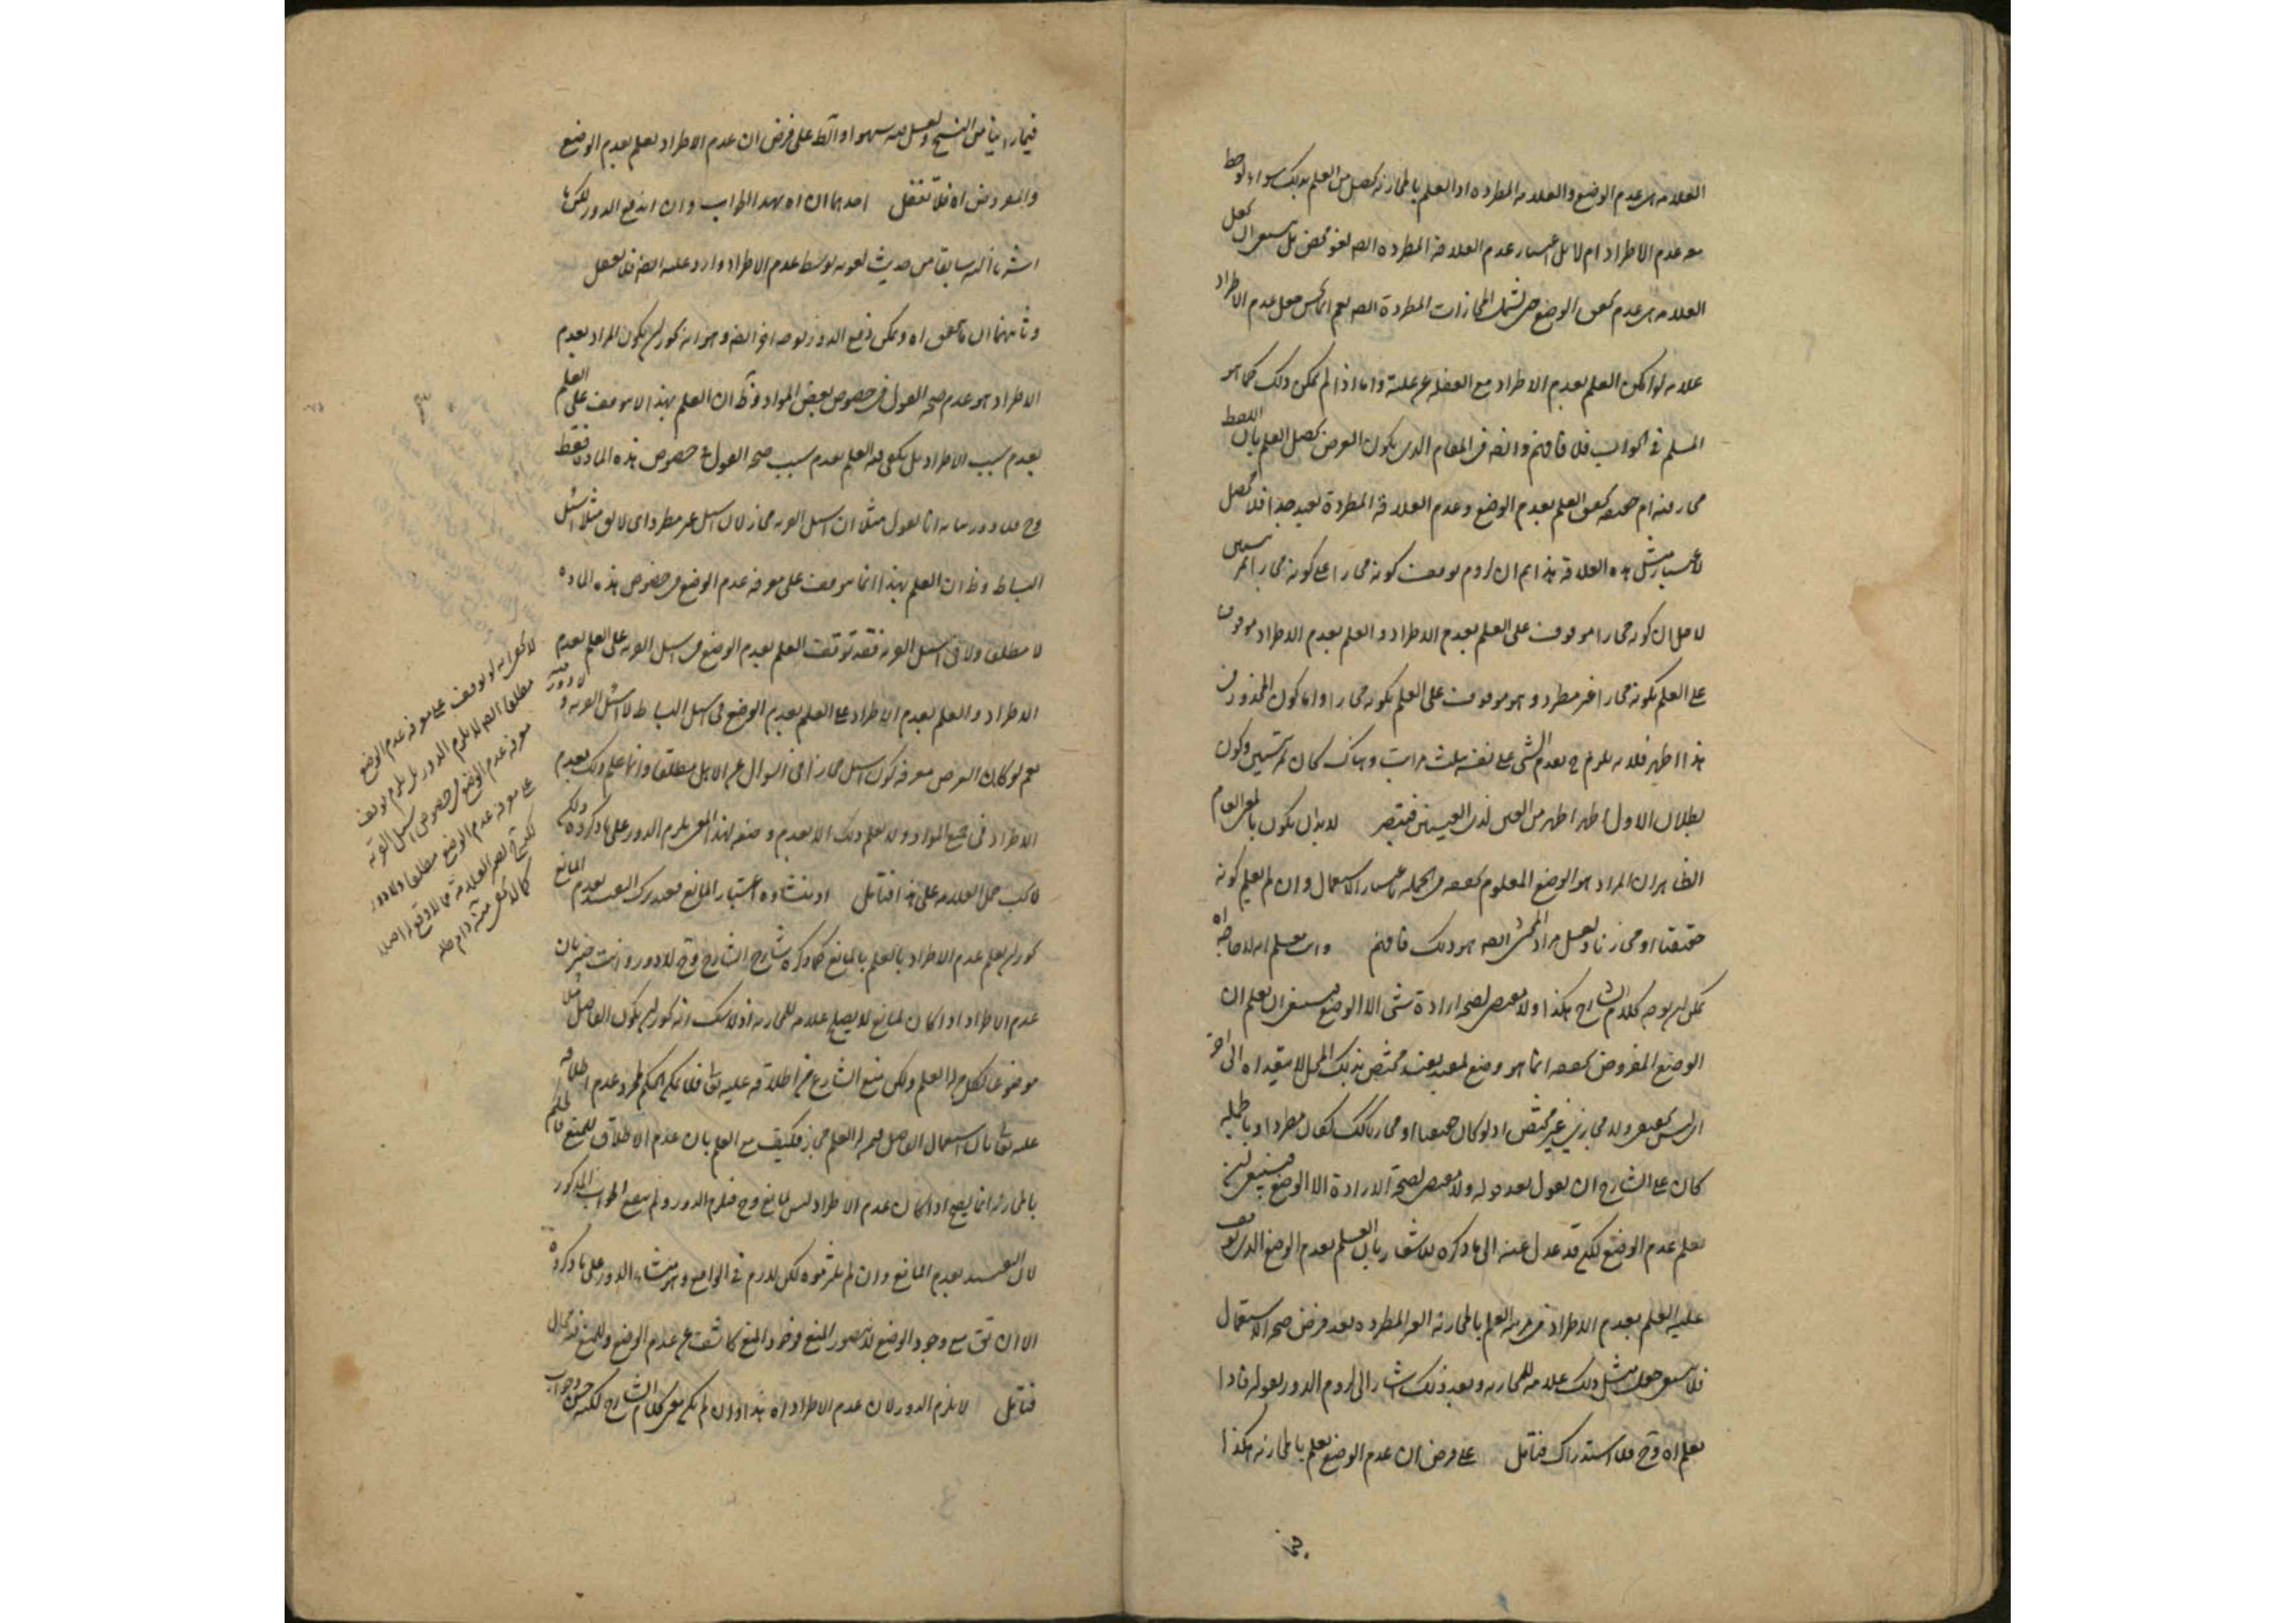 العلامة هى عدم الوضع والعلامة المطردة اذا العلم بالمجازية يحصل من العلم بذلك سواء لوحظ
معه عدم الاطراد ام لا بل اعتبار عدم العلاقة المطردة ايضا لغو محض بل ينبغى ان يجعل
العلامة هى عدم تحقق الوضع حتى يشمل المجازات المطردة ايضا نعم انما يحسن جعل عدم الاطراد
علامة لو امكن العلم بعدم الاطراد مع الغفلة عن علته واما اذا لم يمكن ذلك كما هو
المسلم فى الجواب فلا فافهم وايضا فى المقام الذى يكون الغرض تحصيل العلم بان اللفظ
مجاز فيه ام حقيقة تحقق العلم بعدم الوضع وعدم العلاقة المطردة بعيد جدا فلا يحصل
لاعتبار مثل هذه العلاقة هذا ثم ان لزوم توقف كونه مجازا على كونه مجازا
لاجل ان كونه مجازا موقوف على العلم بعدم الاطراد والعلم بعدم الاطراد موقوف
على العلم بكونه مجازا غير مطرد وهو موقوف على العلم بكونه مجازا واما كون المحذور فى
هذا اظهر فلانه يلزم ح تقدم الشئ على نفسه بثلث مراتب وهناك كان بمرتبتين وكون
بطلان الاول اظهر من لذى العينين فتبصر لا بد ان يكون بالمعنى العام
الظاهر ان المراد هو الوضع المعلوم تحققه فى الجملة باعتبار الاستعمال وان لم يعلم كونه
حقيقيا او مجازيا ولعل مراد المحشى ايضا هو ذلك فافهم وانت تعلم انه لا حاجة اه
يمكن ان يوجه كلام الشارح هكذا ولا مقتضى لصحة ارادة شئ الا الوضع فينبغى ان يعلم ان
الوضع المفروض تحققه انما هو وضع لمعنى مقيد مختص بذلك المحل لا مقيد اه الى اخره
اذ ليس بحقيقى ولا مجازى غير مختص اذ لو كان حقيقيا او مجازيا كذلك لكان مطردا وبالجملة
كان على الشارح ان يقول بعد قوله ولا مقتضى لصحة الارادة الا الوضع فينبغى ان
يعلم عدم الوضع لكنه قد عدل عنه الى ما ذكره للاشعار بان العلم بعدم الوضع الذى توقف
عليه العلم بعدم الاطراد فى مرتبة العلم بالمجازية الغير المطردة بعد فرض صحة الاستعمال
فلا ينبغى جعل مثل ذلك علامة للمجازية وبعد ذلك اشار الى لزوم الدور بقوله فاذا
يعلم اه وح فلا استدراك فتأمل على فرض ان عدم الوضع يعلم بالمجازية هكذا
فيما رأينا من النسخ ولعل فيه سهوا والظ على فرض ان عدم الاطراد يعلم بعدم الوضع
والمفروض اه فلا تغفل احدهما ان اه بهذا الجواب وان اندفع الدور لكن ما
اشرنا اليه سابقا من حديث لغوية توسط عدم الاطراد وارد عليه ايضا فلا تغفل
وثانيهما ان ما تحقق اه ويمكن دفع الدور بوجه اخر ايضا وهو انه يجوز ان يكون المراد بعدم
الاطراد هو عدم صحة القول فى خصوص بعض المواد وظ ان العلم بهذا لا يتوقف على العلم
بعدم سبب الاطراد بل يكفى فيه العلم بعدم سبب صحة القول فى خصوص هذه المادة فقط
وح فلا دور بيانه انا نقول مثلا ان اسئل القرية مجاز لان اسئل غير مطرد اى لا يق مثلا اسئل
البساط وظ ان العلم بهذا انما يتوقف على معرفة عدم الوضع فى خصوص هذه المادة
لا مطلقا ولا فى اسئل القرية فقد توقف العلم بعدم الوضع فى اسئل القرية على العلم بعدم
الاطراد والعلم بعدم الاطراد على العلم بعدم الوضع فى اسئل البساط لا اسئل القرية ولا دور فيه
نعم لو كان الغرض معرفة كون اسئل مجازا فى السؤال عن الاهل مطلقا وانما علم ذلك بعدم
الاطراد فى جميع المواد ولا يعلم ذلك الا بعدم وضعه لهذا المعنى يلزم الدور على ما ذكروه ولكن
لا يجب حمل العلامة على هذا فتأمل او منشاؤه اعتبار المانع فقد ترك التقييد بعدم المانع
يجوز ان يعلم عدم الاطراد بالعلم بالمانع كما ذكره شارح الشارح وح لا دور وانت خبير بان
عدم الاطراد اذا كان لمانع لا يصلح علامة للمجازية اذ لا شك انه يجوز ان يكون الفاضل مثلا
موضوعا لكل من له العلم ولكن منع الشارع من اطلاقه عليه تعالى فلا يمكن الحكم بمجرد عدم اطلاقه
عليه تعالى بان استعمال الفاضل فيمن له العلم مجاز فكيف مع العلم بان عدم الاطلاق للمنع فالحكم
بالمجازية انما يصح اذا كان عدم الاطراد ليس لمانع وح فيلزم الدور ولم ينفع الجواب المذكور
لان التقييد بعدم المانع وان لم يذكروه لكن لازم فى الواقع وهو منشاء الدور على ما ذكروه
الا ان يق مع وجود الوضع لا يتصور المنع فوجود المنع كاشف عن عدم الوضع وللمنع فيه مجال
فتأمل لا يلزم الدور لان عدم الاطراد اه هذا وان لم يكن معنى كلام الشارح لكنه جواب حسن
لا يخفى انه لو توقف على معرفة عدم الوضع
مطلقا ايضا لا يلزم الدور بل يلزم توقف
معرفة عدم الوضع فى خصوص اسئل القرية
على معرفة عدم الوضع مطلقا ولا دور
لكن ح تصير العلامة مما لا وقع له اصلا
كما لا يخفى منه دام ظله